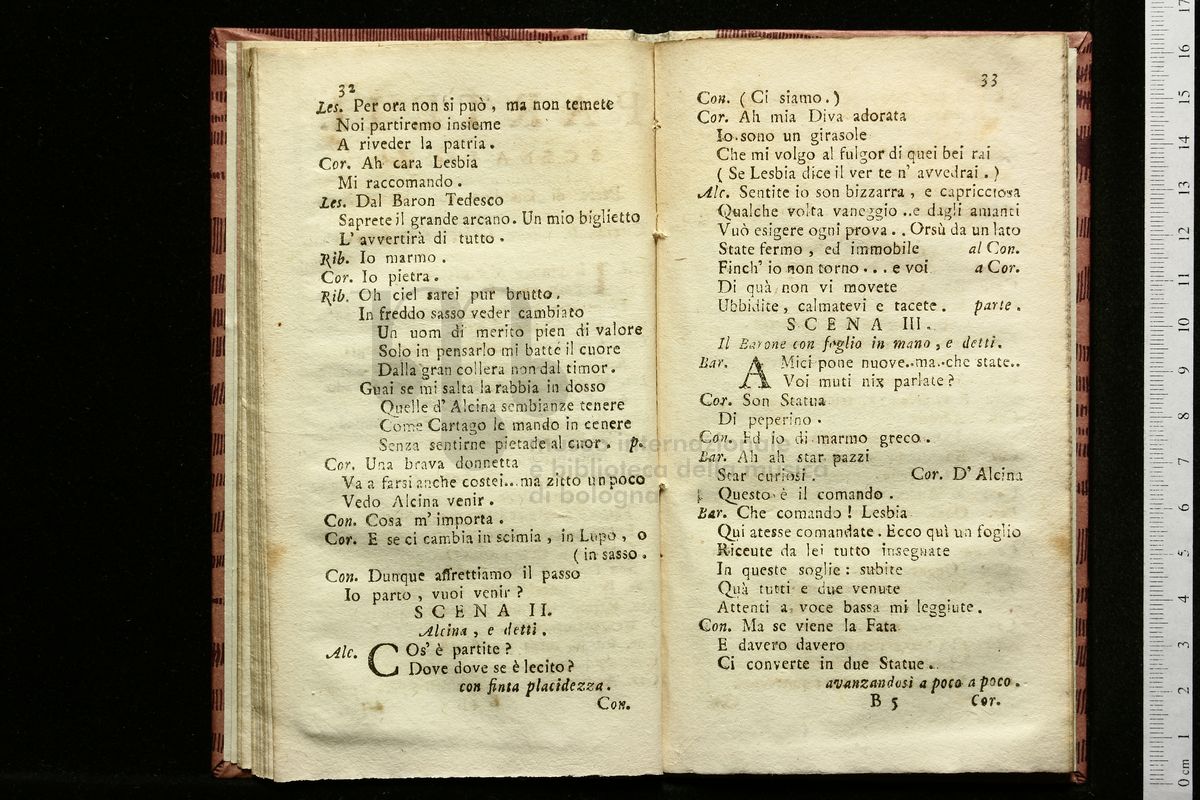 32
Les. Per ora non si può, ma non temete
Noi partiremo insieme
A riveder la patria.
Cor. Ah cara Lesbia
Mi raccomando.
Les. Dal Baron Tedesco
Saprete il grande arcano. Un mio biglietto
L' avvertirà di tutto.
Rib. Io marmo.
Cor. Io pietra.
Rib. Oh ciel sarei pur brutto.
In freddo sasso veder cambiato
Un uom di merito pien di valore
Solo in pensarlo mi batte il cuore
Dalla gran collera non dal timor.
Guai se mi salta la rabbia in dosso
Quelle d' Alcina sembianze tenere
Come Cartago le mando in cenere
Senza sentirne pietade al cuor. p.
Cor. Una brava donnetta
Va a farsi anche costei... ma zitto un poco
Vedo Alcina venir.
Con. Cosa m' importa.
Cor. E se ci cambia in scimia, in Lupo, o
( in sasso.
Con. Dunque affrettiamo il passo
Io parto, vuoi venir?
SCENA II.
Alcina, e detti.
Alc. COs' è partite?
Dove dove se è lecito?
con finta placidezza.
Con.
33
Con. ( Ci siamo. )
Cor. Ah mia Diva adorata
Io sono un girasole
Che mi volgo al fulgor di quei bei rai
( Se Lesbia dice il ver te n' avvedrai. )
Alc. Sentite io son bizzarra, e capricciosa
Qualche volta vaneggio .. e dagli amanti
Vuò esigere ogni prova.. Orsù da un lato
State fermo, ed immobile al Con.
Finch' io non torno... e voi a Cor.
Di quà non vi movete
Ubbidite, calmatevi e tacete. parte.
SCENA III.
Il Barone con foglio in mano, e detti.
Bar. AMici pone nuove..ma..che state..
Voi muti nix parlate?
Cor. Son Statua
Di peperino.
Con. Ed io di marmo greco.
Bar. Ah ah star pazzi
Star curiosi. Cor. D' Alcina
Questo è il comando.
Bar. Che comando! Lesbia
Qui atesse comandate. Ecco quì un foglio
Riceute da lei tutto insegnate
In queste soglie: subite
Quà tutti e due venute
Attenti a voce bassa mi leggiute.
Con. Ma se viene la Fata
E davero davero
Ci converte in due Statue.
avanzandosi a poco a poco.
B 5 Cor.
internazionale
e biblioteca della musica
di bologna
0 cm 1 2 3 4 5 6 7 8 9 10 11 12 13 14 15 16 17